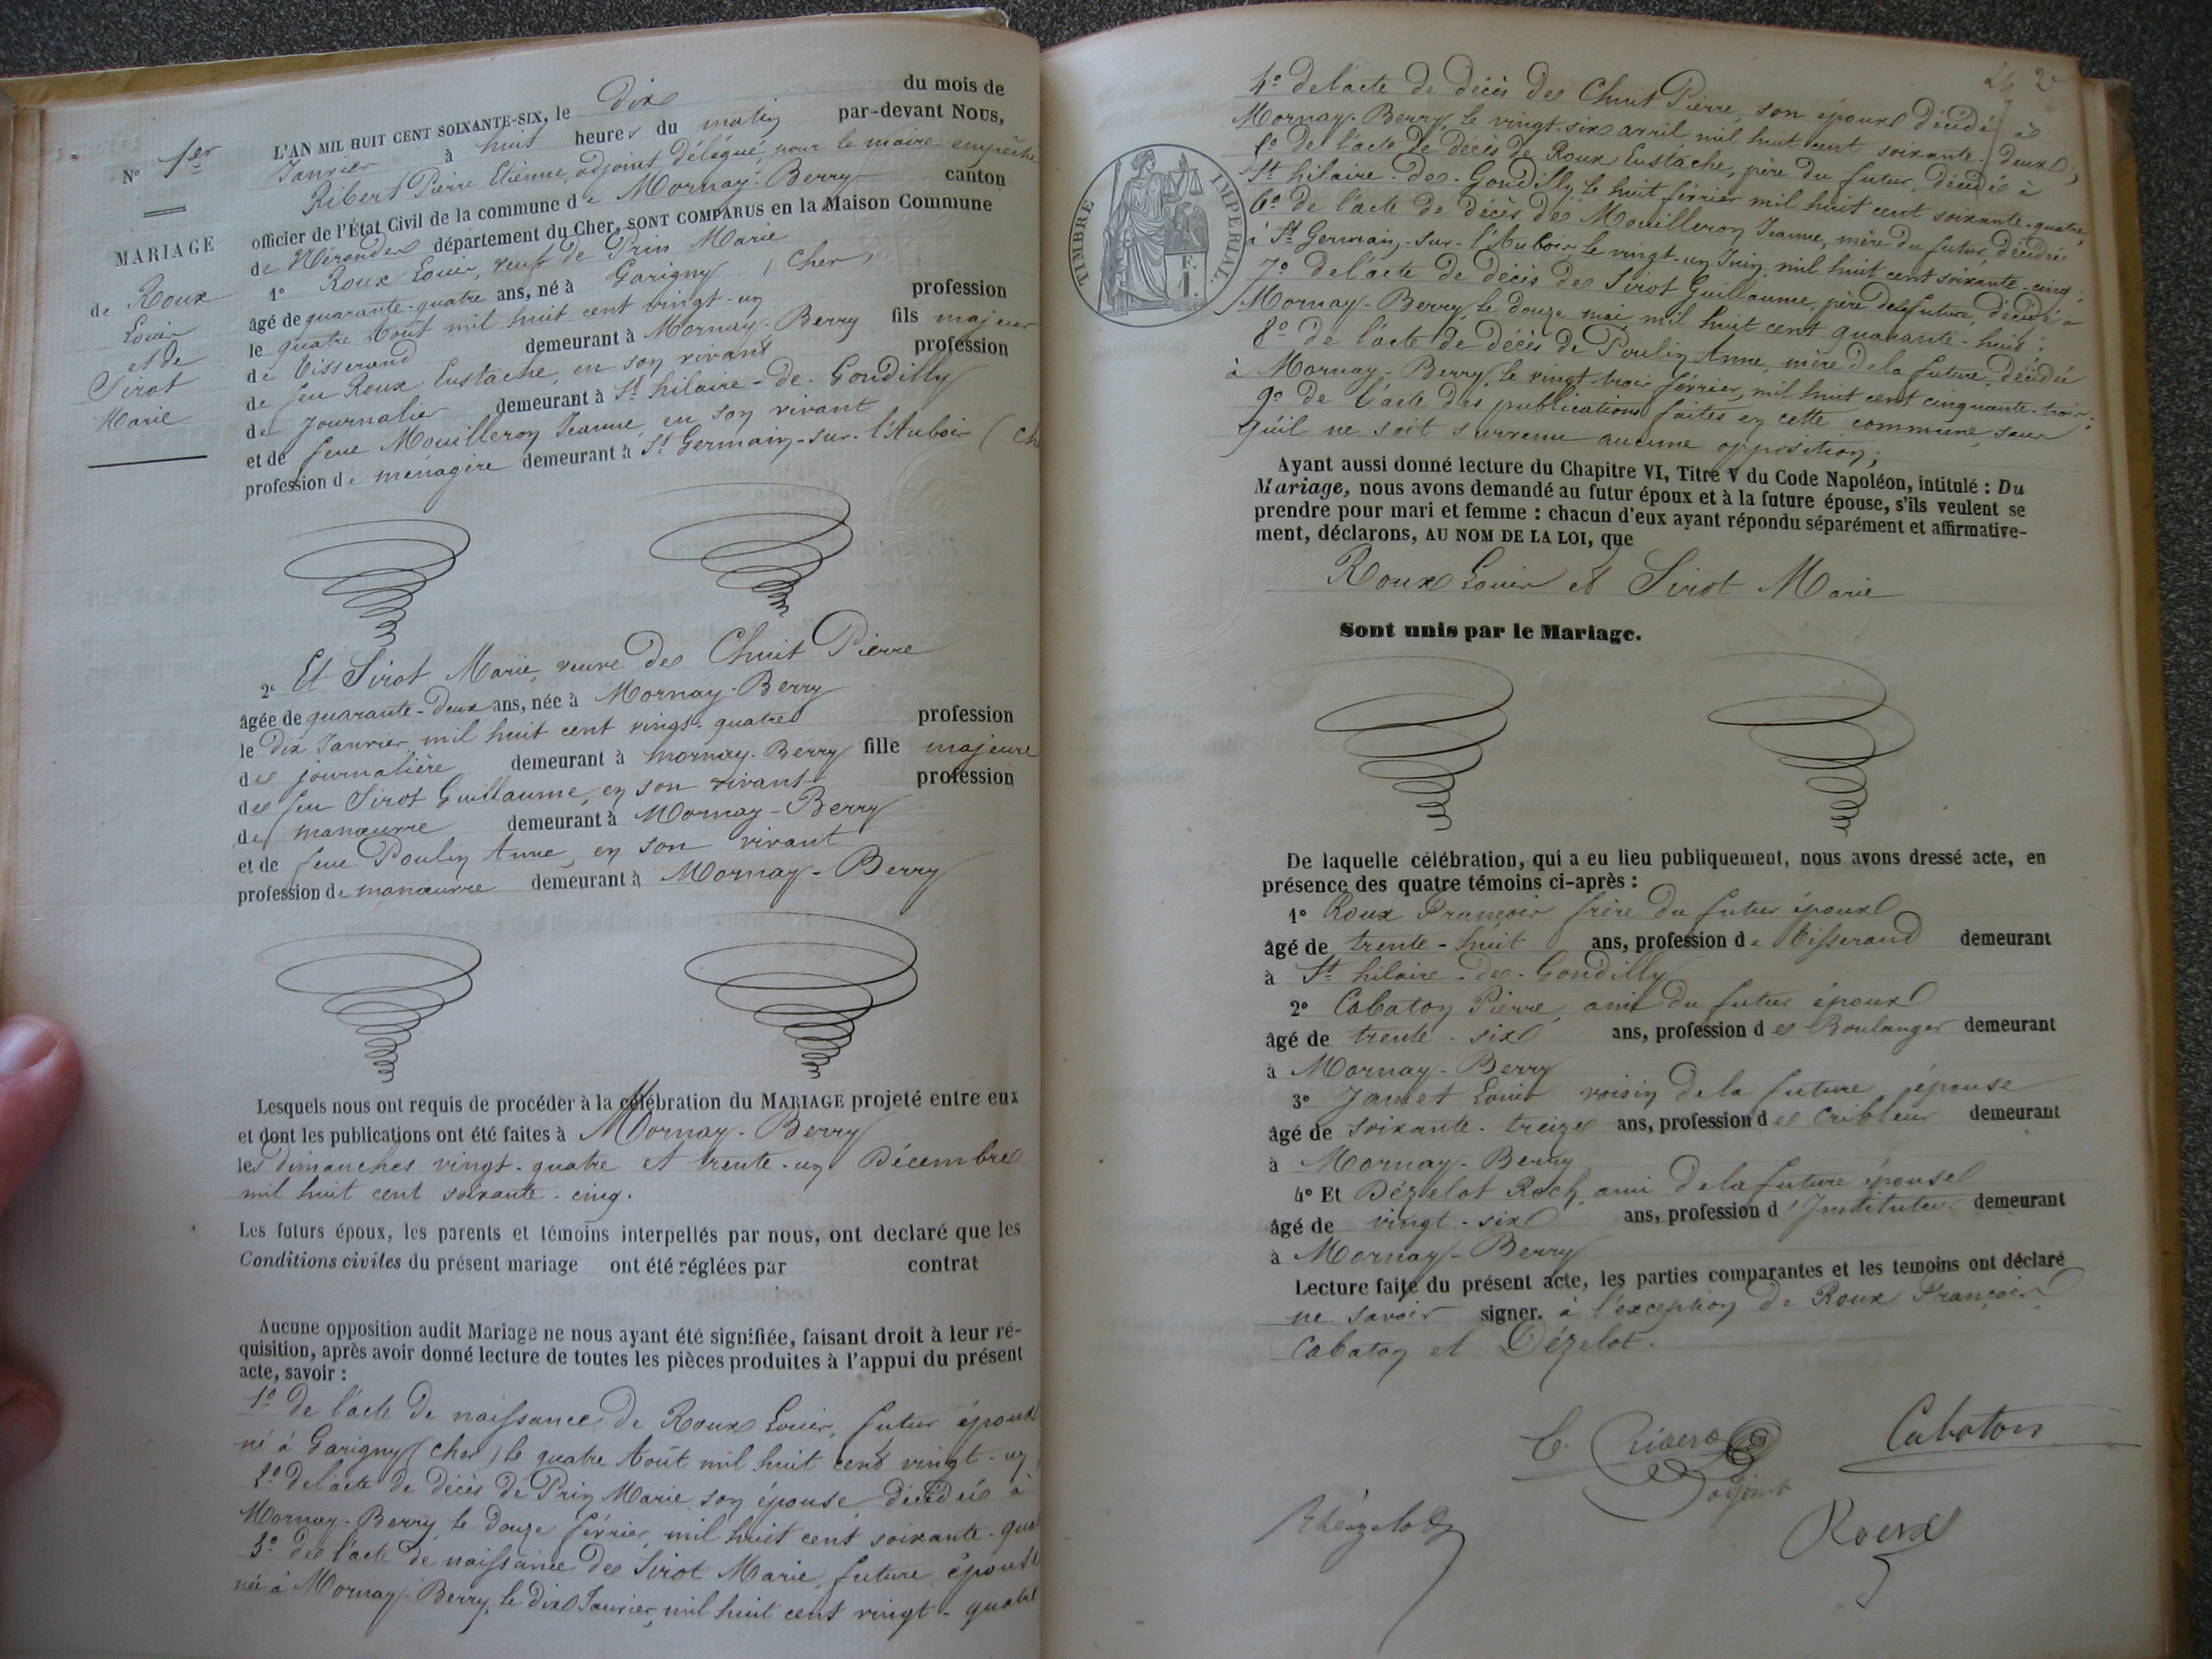 L'AN MIL HUIT CENT SOIXANTE-SIX, le Dix du mois de
Janvier à huit heures du matin par-devant NOUS,
Ribert Pierre Etienne, adjoint délégué, pour le maire empêché
officier de l'État Civil de la commune de Mornay-Berry canton
de Nérondes département du Cher, SONT COMPARUS en la Maison Commune
N° 1er
MARIAGE
de Roux
Louis
et de
Sirot
Marie
1° Roux Louis, veuf de Prin Marie
âgé de quarante-quatre ans, né à Garigny (Cher)
le quatre Août mil huit cent vingt-un profession
de tisserand demeurant à Mornay-Berry fils majeur
de feu Roux Eustache, en son vivant profession
de Journalier demeurant à St hilaire-de-Gondilly
et de feue Mouilleron Jeanne, en son vivant
profession de ménagère demeurant à St Germain-sur-l'Aubois (Ch
2° Et Sirot Marie, veuve de Chuit Pierre
âgée de quarante-deux ans, née à Mornay-Berry
le dix Janvier mil huit cent vingt-quatre profession
de journalière demeurant à Mornay-Berry fille majeure
de feu Sirot Guillaume, en son vivant profession
de manœuvre demeurant à Mornay-Berry
et de feue Poulin Anne, en son vivant
profession de manœuvre demeurant à Mornay-Berry
Lesquels nous ont requis de procéder à la célébration du MARIAGE projeté entre eux
et dont les publications ont été faites à Mornay-Berry
les dimanches vingt-quatre et trente-un Décembre
mil huit cent soixante-cinq.
Les futurs époux, les parents et témoins interpellés par nous, ont declaré que les
Conditions civiles du présent mariage ont été réglées par contrat
Aucune opposition audit Mariage ne nous ayant été signifiée, faisant droit à leur ré-
quisition, après avoir donné lecture de toutes les pièces produites à l'appui du présent
acte, savoir :
1° de l'acte de naissance de Roux Louis, futur époux
né à Garigny (Cher) le quatre Août mil huit cent vingt-un
2° de l'acte de décès de Prin Marie, son épouse décédée à
Mornay-Berry, le douze février mil huit cent soixante-qua
3° de l'acte de naissance de Sirot Marie, future épouse
née à Mornay-Berry, le dix Janvier mil huit cent vingt-quatre
4° de l'acte de décès de Chuit Pierre, son époux décédé à
Mornay-Berry, le vingt-six avril mil huit cent soixante-deux ;
5° de l'acte de décès de Roux Eustache, père du futur, décédé à
St hilaire-de-Gondilly, le huit février mil huit cent soixante-quatre ;
6° de l'acte de décès de Mouilleron Jeanne, mère du futur, décédée
à St Germain-sur-l'Aubois, le vingt-un Juin mil huit cent soixante-cinq ;
7° de l'acte de décès de Sirot Guillaume, père de la future, décédé à
Mornay-Berry, le douze mai mil huit cent quarante-huit ;
8° de l'acte de décès de Poulin Anne, mère de la future, décédée
à Mornay-Berry, le vingt-trois février, mil huit cent cinquante-trois ;
9° de l'acte des publications faites en cette commune, sans
qu'il ne soit survenu aucune opposition ;
TIMBRE IMPÉRIAL
Ayant aussi donné lecture du Chapitre VI, Titre V du Code Napoléon, intitulé : Du
Mariage, nous avons demandé au futur époux et à la future épouse, s'ils veulent se
prendre pour mari et femme : chacun d'eux ayant répondu séparément et affirmative-
ment, déclarons, AU NOM DE LA LOI, que
Roux Louis et Sirot Marie
Sont unis par le Mariage.
De laquelle célébration, qui a eu lieu publiquement, nous avons dressé acte, en
présence des quatre témoins ci-après :
1° Roux François frère du futur époux
âgé de trente-huit ans, profession de tisserand demeurant
à St hilaire-de-Gondilly
2° Cabaton Pierre, ami du futur époux
âgé de trente-six ans, profession de Boulanger demeurant
à Mornay-Berry
3° Jamet Louis voisin de la future épouse
âgé de soixante-treize ans, profession de Cribleur demeurant
à Mornay-Berry
4° Et Dézelot Roch, ami de la future épouse
âgé de vingt-six ans, profession d'Instituteur demeurant
à Mornay-Berry
Lecture faite du présent acte, les parties comparantes et les temoins ont déclaré
ne savoir signer. à l'exception de Roux François
Cabaton et Dézelot.
adjoint
Cabaton
Roux